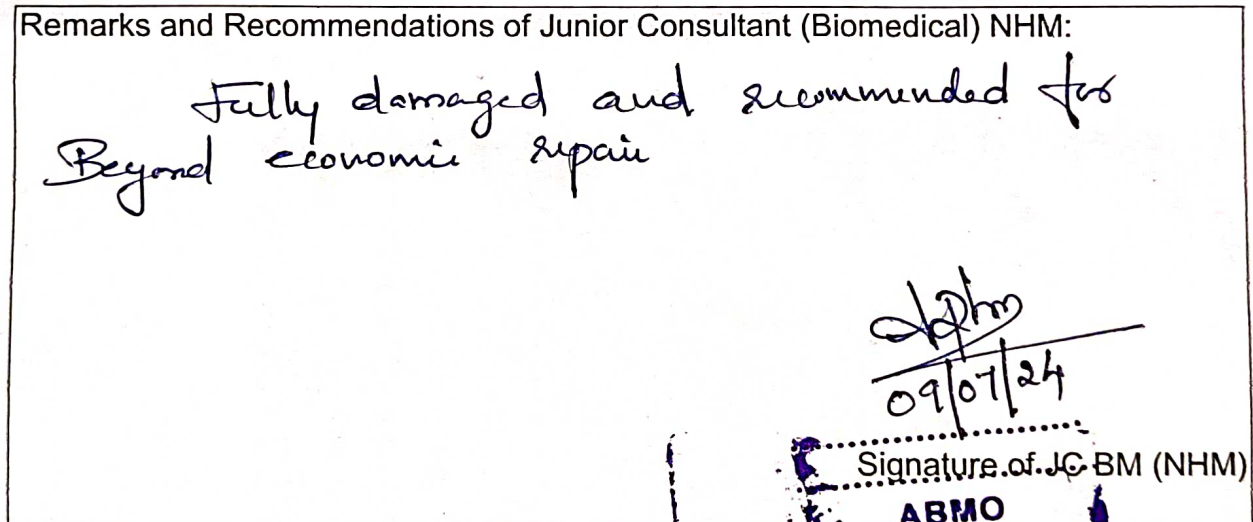 Remarks and Recommendations of Junior Consultant (Biomedical) NHM:
Fully damaged and recommended for
Beyond economic repair
09/07/24
Signature of JC BM (NHM)
ABMO